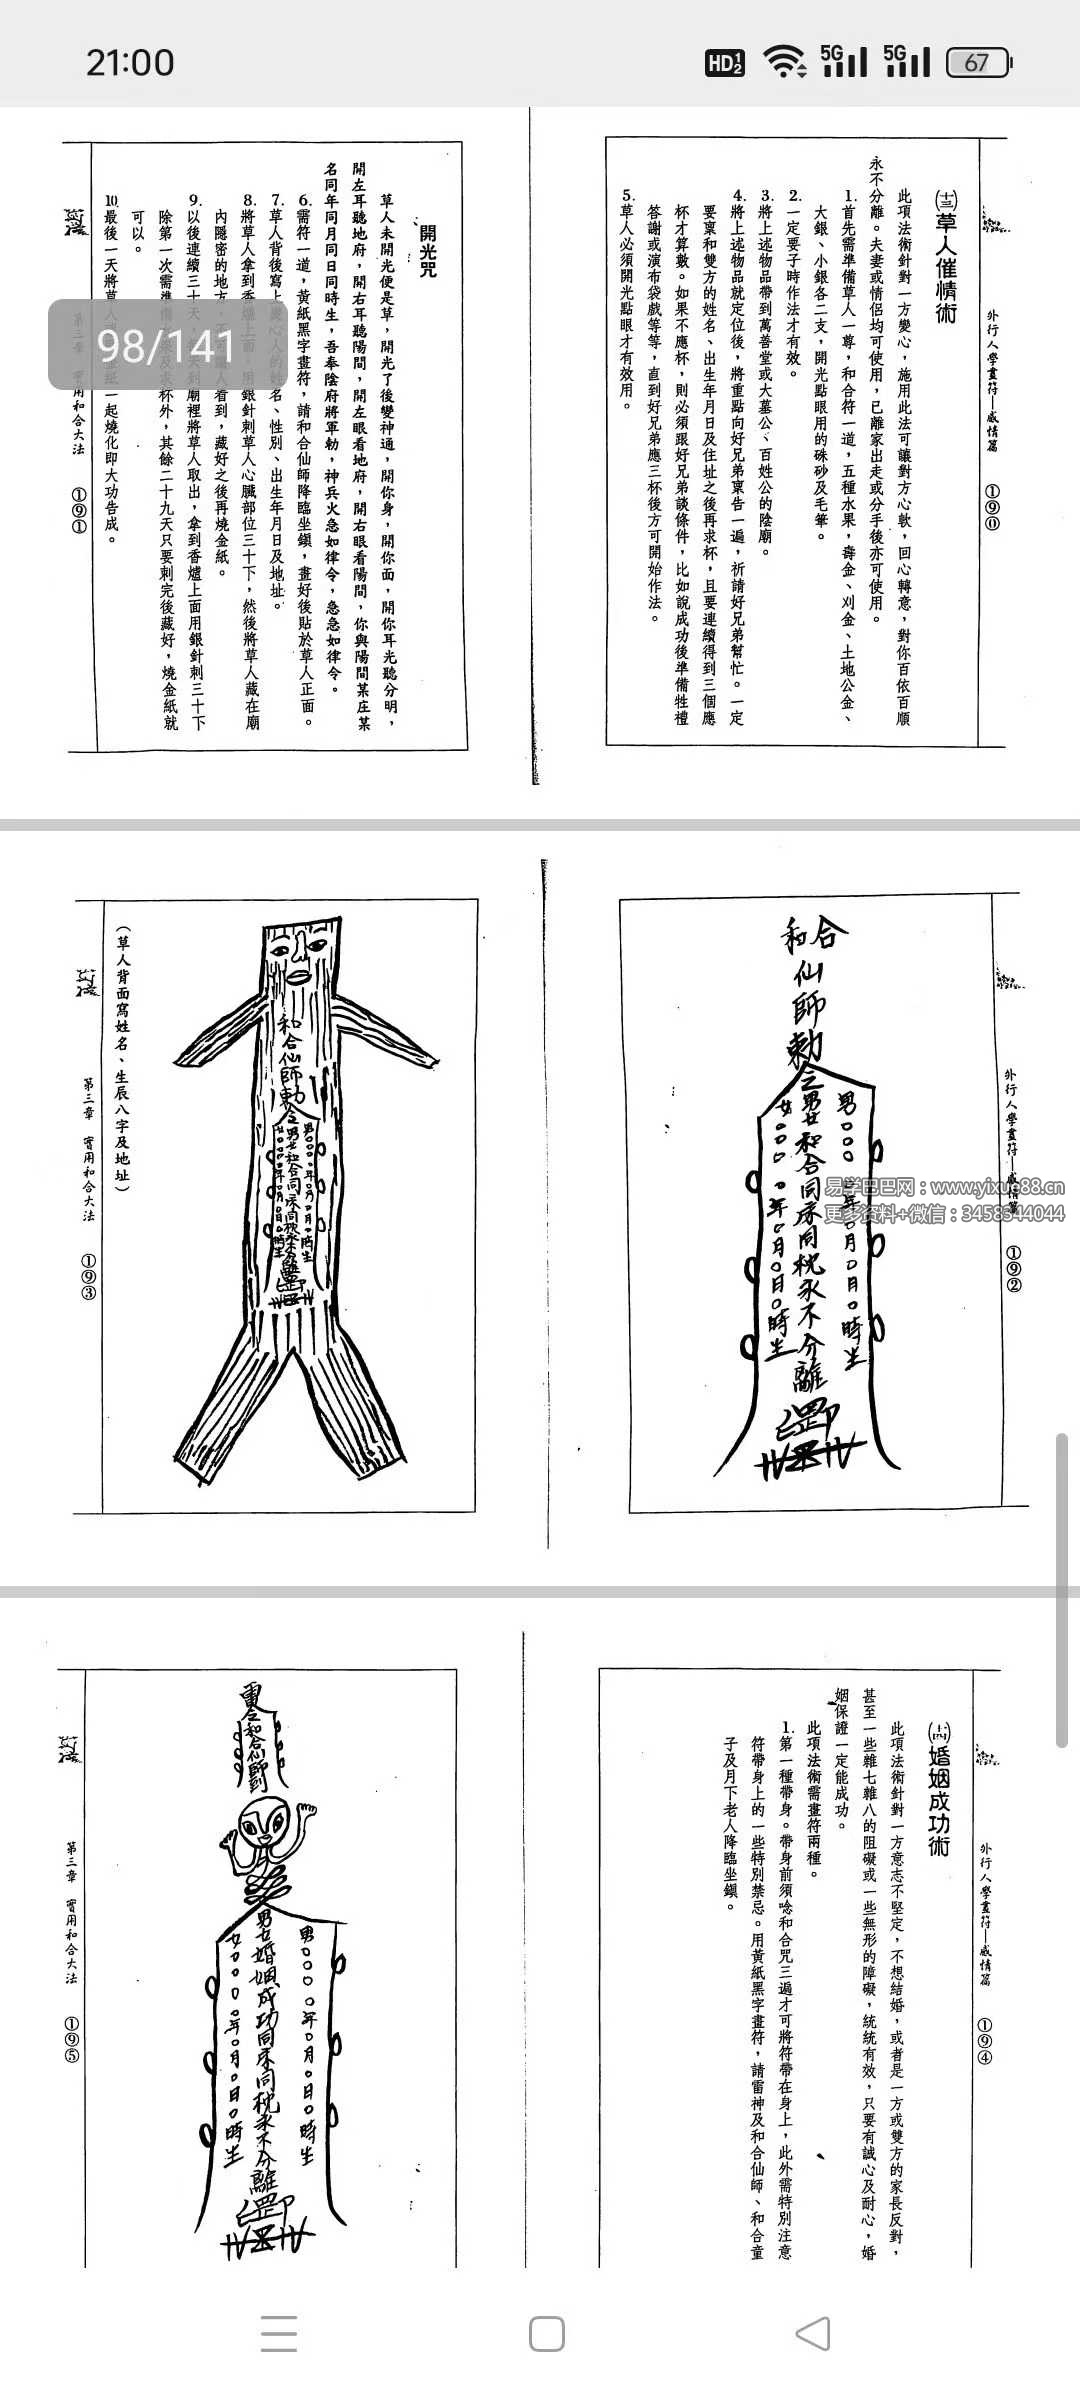 21:00
HD 1 2
5G
5G
67
98/141
外行人學畫符—感情篇
①⑨⓪
(十三)草人催情術
此項法術針對一方變心，施用此法可讓對方心軟，回心轉意，對你百依百順
永不分離。夫妻或情侶均可使用，已離家出走或分手後亦可使用。
1.首先需準備草人一尊，和合符一道，五種水果，壽金、刈金、土地公金、
大銀、小銀各二支，開光點眼用的硃砂及毛筆。
2.一定要子時作法才有效。
3.將上述物品帶到萬善堂或大墓公、百姓公的陰廟。
4.將上述物品就定位後，將重點向好兄弟稟告一遍，祈請好兄弟幫忙。一定
要稟和雙方的姓名、出生年月日及住址之後再求杯，且要連續得到三個應
杯才算數。如果不應杯，則必須跟好兄弟談條件，比如說成功後準備牲禮
答謝或演布袋戲等等，直到好兄弟應三杯後方可開始作法。
5.草人必須開光點眼才有效用。
開光咒
草人未開光便是草，開光了後變神通，開你身，開你面，開你耳光聽分明，
開左耳聽地府，開右耳聽陽間，開左眼看地府，開右眼看陽間，你與陽間某庄某
名同年同月同日同時生，吾奉陰府將軍勅，神兵火急如律令，急急如律令。
6.需符一道，黃紙黑字畫符，請和合仙師降臨坐鎮，畫好後貼於草人正面。
7.草人背後寫上變心人的姓名、性別、出生年月日及地址。
8.將草人拿到香爐上面，用銀針刺草人心臟部位三十下，然後將草人藏在廟
內隱密的地方，不可讓人看到，藏好之後再燒金紙。
9.以後連續三十天，到廟裡將草人取出，拿到香爐上面用銀針刺三十下
除第一次需準備及求杯外，其餘二十九天只要刺完後藏好，燒金紙就
可以。
10.最後一天將草人金紙一起燒化即大功告成。
第三章 實用和合大法
①⑨①
外行人學畫符—感情篇
①⑨②
和合仙師勅令
男〇〇〇〇年〇月〇日〇時生
男女和合同床同枕永不分離
女〇〇〇〇年〇月〇日〇時生
罡印
易学巴巴网：www.yixue88.cn
更多资料+微信：3458344044
和合仙師勅令
男〇〇〇〇年〇月〇日〇時生
男女和合同床同枕永不分離
女〇〇〇〇年〇月〇日〇時生
罡
(草人背面寫姓名、生辰八字及地址)
第三章 實用和合大法
①⑨③
外行人學畫符—感情篇
①⑨④
(十四)婚姻成功術
此項法術針對一方意志不堅定，不想結婚，或者是一方或雙方的家長反對，
甚至一些雜七雜八的阻礙或一些無形的障礙，統統有效，只要有誠心及耐心，婚
姻保證一定能成功。
此項法術需畫符兩種。
1.第一種帶身。帶身前須唸和合咒三遍才可將符帶在身上，此外需特別注意
符帶身上的一些特別禁忌。用黃紙黑字畫符，請雷神及和合仙師、和合童
子及月下老人降臨坐鎮。
雷令和合仙師到
男〇〇〇〇年〇月〇日〇時生
男女婚姻成功同床同枕永不分離
女〇〇〇〇年〇月〇日〇時生
罡印
第三章 實用和合大法
①⑨⑤